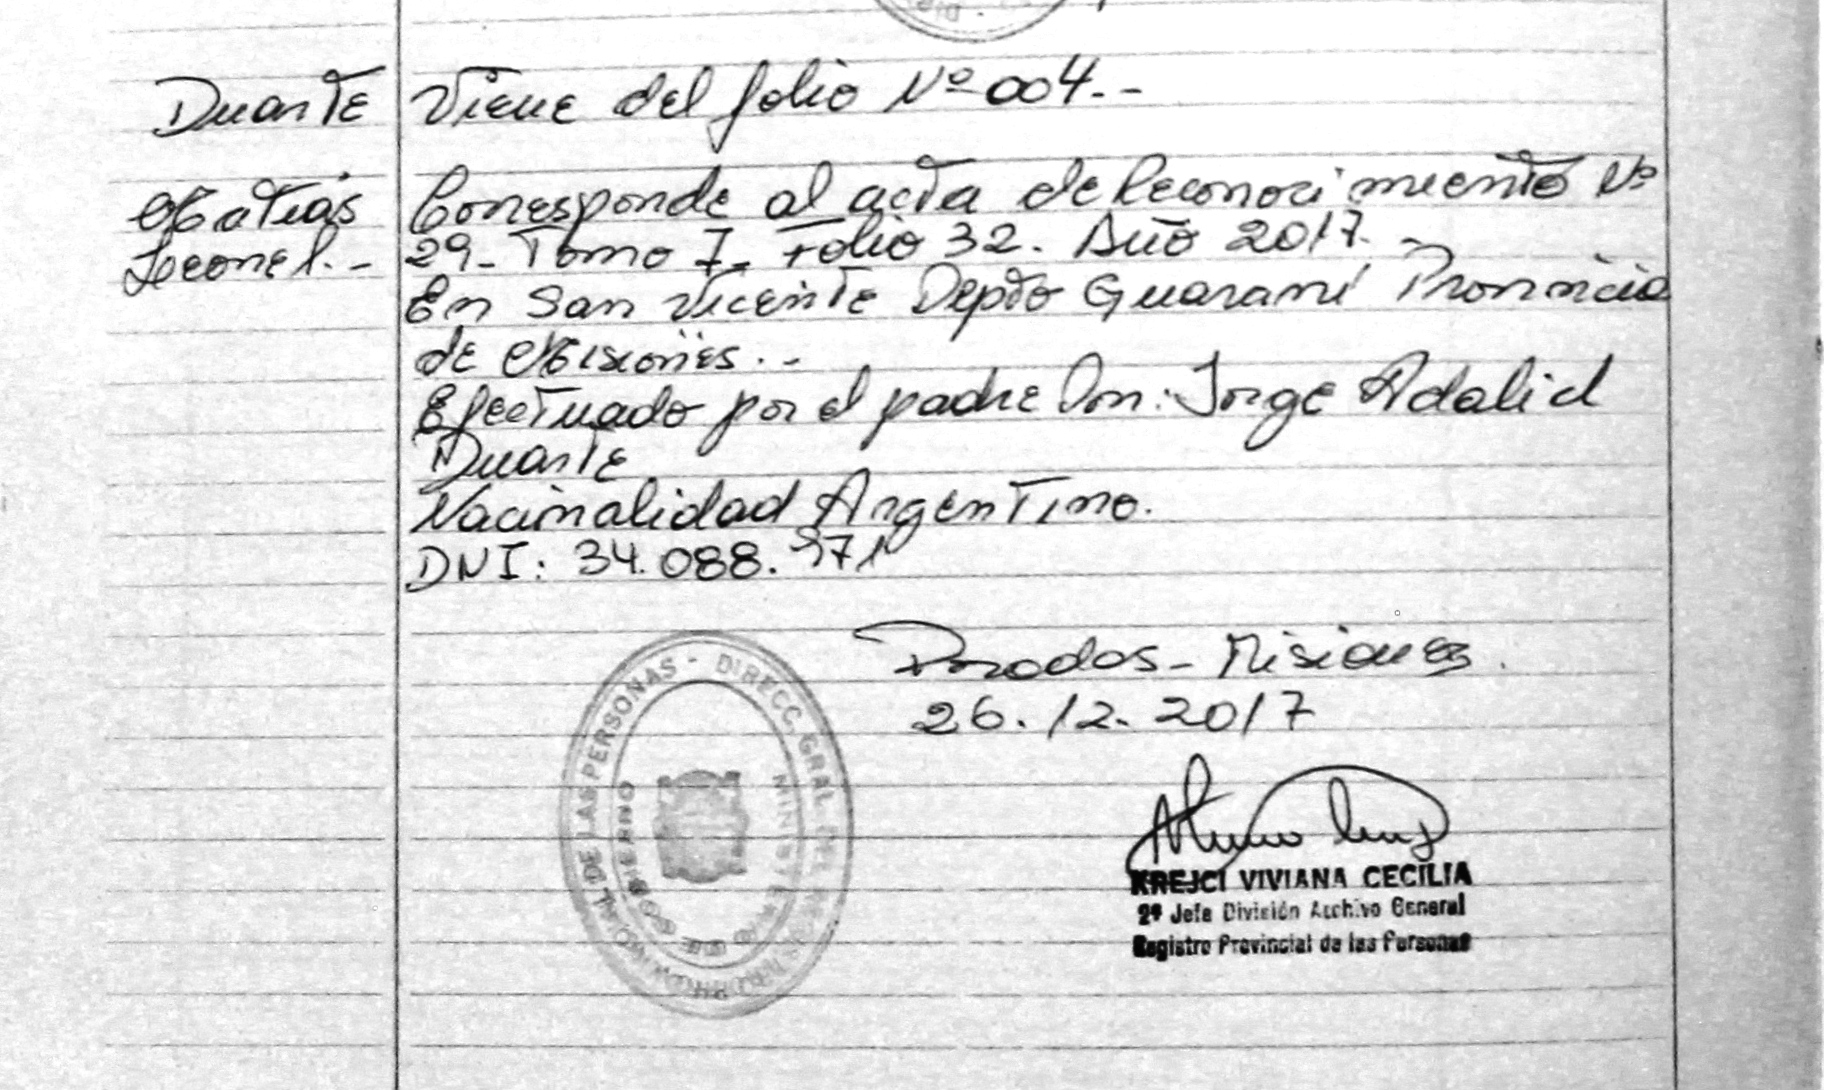 Duarte
Matias
Leonel.-
Viene del folio Nº 004.--
Corresponde al acta de Reconocimiento Nº
29- Tomo 7- Folio 32. Año 2017.-
En San Vicente Depto Guaraní Provincia
de Misiones.-
Efectuado por el padre Don: Jorge Adalid
Duarte
Nacionalidad Argentino.
DNI: 34.088.971
Posadas - Misiones.
26.12.2017
DIRECC. GRAL. DEL REGISTRO PROVINCIAL DE LAS PERSONAS -
MINISTERIO DE GOBIERNO
KREJCI VIVIANA CECILIA
2º Jefe División Archivo General
Registro Provincial de las Personas